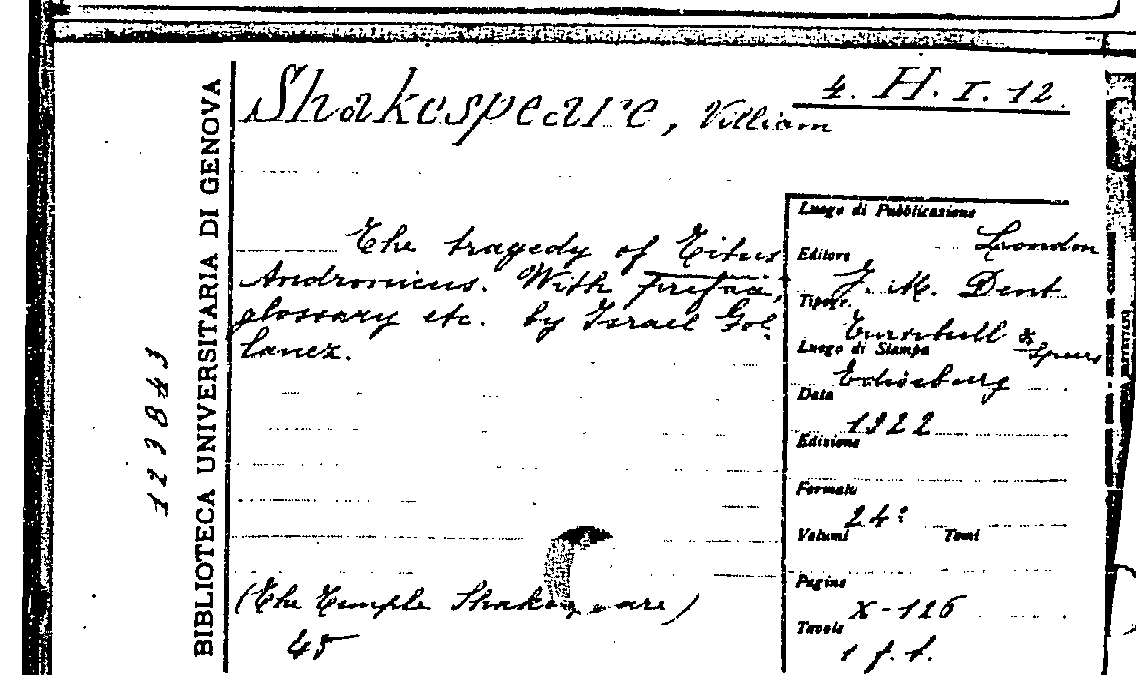 4. H. I. 12.
Shakespeare, William
BIBLIOTECA UNIVERSITARIA DI GENOVA
123843
The tragedy of Titus
Andronicus. With preface,
glossary etc. by Israel Gol
lancz.
(The Temple Shakespeare)
45
Luogo di Pubblicazione
London
Editore
J. M. Dent
Tipogr.
Turnbull & Spears
Luogo di Stampa
Edinburg
Data
1922
Edizione
Formato
24º
Volumi Tomi
Pagine
X-126
Tavole
1 f. t.